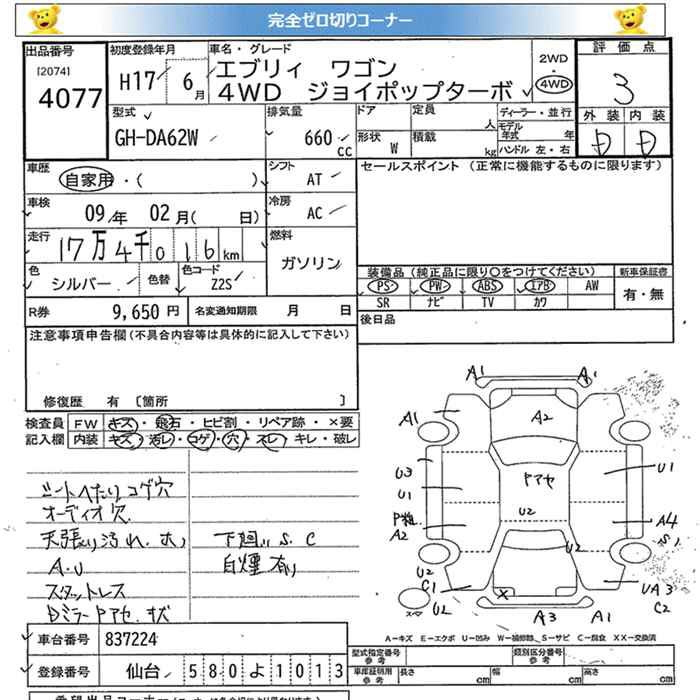 完全ゼロ切りコーナー
出品番号
[2074]
4077
初度登録年月
H17 6月
車名・グレード
エブリィ ワゴン
4WD ジョイポップターボ
2WD
4WD
評価点
3
外装 内装
D D
型式
GH-DA62W
排気量
660 cc
ドア
形状 W
定員 人
積載 kg
ディーラー・並行
モデル年式 年
ハンドル 左・右
車歴
自家用・( )
シフト
AT
セールスポイント (正常に機能するものに限ります)
車検
09年 02月( 日)
冷房
AC
走行
17万4千016km
燃料
ガソリン
色
シルバー
色替
色コード
Z2S
装備品(純正品に限り○をつけてください)
PS PW ABS エアB AW
SR ナビ TV カワ
新車保証書
有・無
R券 9,650円
名変通知期限 月 日
後日品
注意事項申告欄(不具合内容等は具体的に記入して下さい)
修復歴 有 [箇所 ]
検査員記入欄
FW キズ・飛石・ヒビ割・リペア跡・×要
内装 キズ・汚レ・コゲ・穴・スレ・キレ・破レ
シートへたり コゲ穴
オーディオ穴
天張り汚れ
A.U
スタットレス
下廻り S.C
白煙有り
A1 A1
A1 A2
U3 U1
U1 Pアセ
U2
A2 A4
S1
U2 U2
C1
U2 UA3
C2
A3 A1
A−キズ E−エクボ U−凹み W−補修跡 S−サビ C−腐食 XX−交換済
車台番号 837224
登録番号 仙台 580よ1013
型式指定番号 参考
類別区分番号 参考
車庫証明用 参考
長さ cm
幅 cm
高さ cm